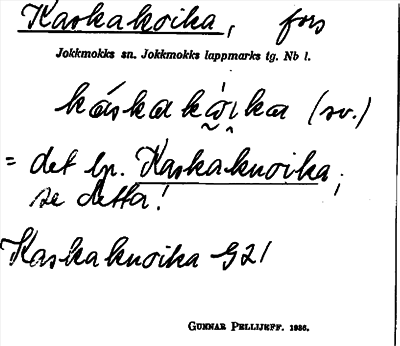 Kaskakoika, fors
Jokkmokks sn. Jokkmokks lappmarks tg. Nb l.
káskakå̀ı̭ka (sv.)
= det lp. Kaskakuoika,
se detta!
Kaskakuoika G21
GUNNAR PELLIJEFF. 1936.